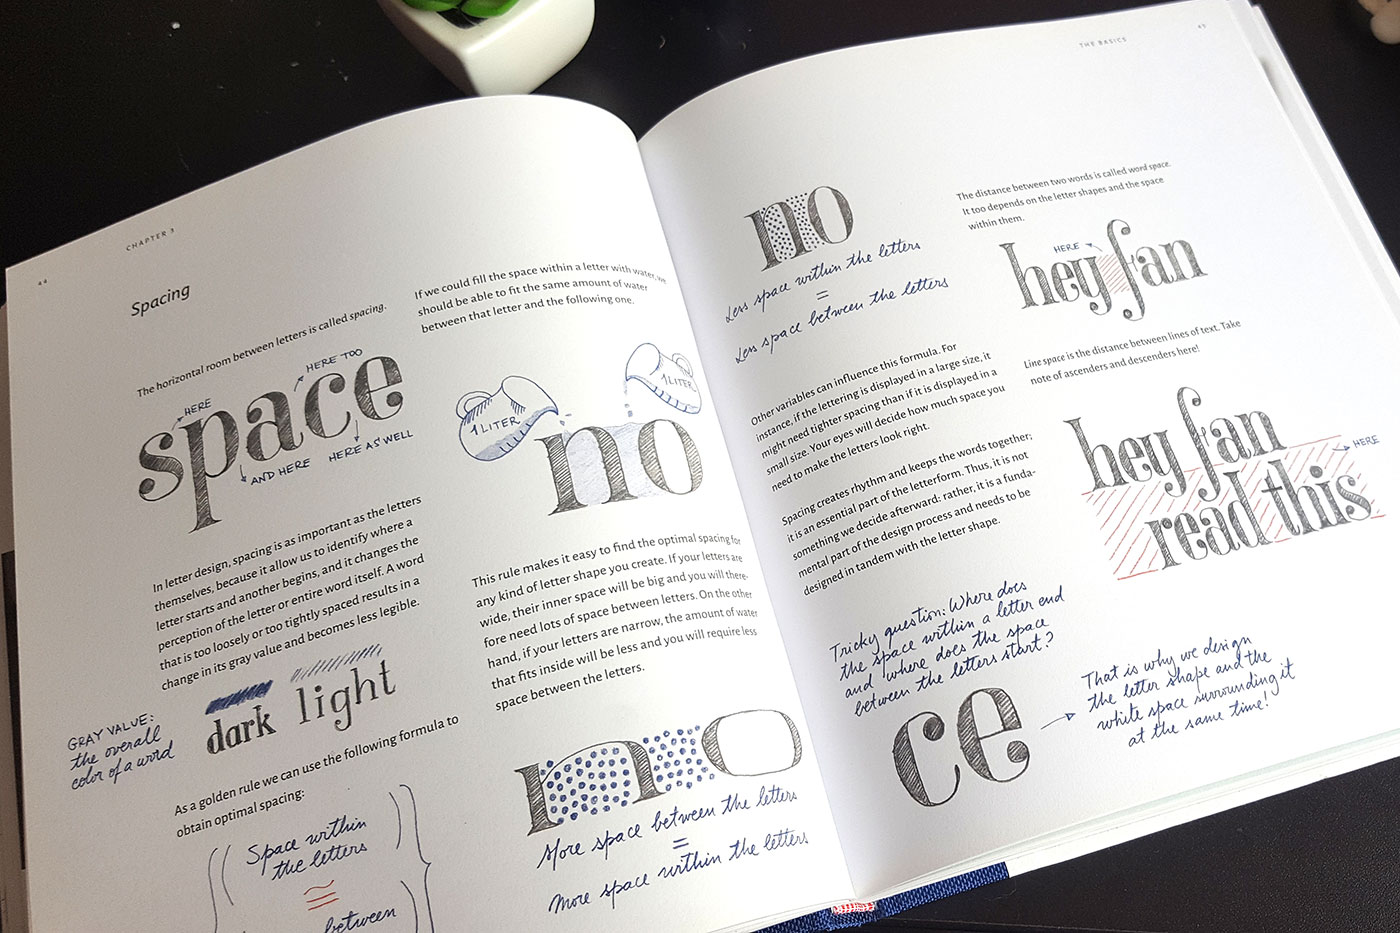 44
CHAPTER 3
Spacing
The horizontal room between letters is called spacing.
HERE
HERE TOO
space
AND HERE
HERE AS WELL
In letter design, spacing is as important as the letters
themselves, because it allow us to identify where a
letter starts and another begins, and it changes the
perception of the letter or entire word itself. A word
that is too loosely or too tightly spaced results in a
change in its gray value and becomes less legible.
dark light
GRAY VALUE:
the overall
color of a word
As a golden rule we can use the following formula to
obtain optimal spacing:
Space within
the letters
between
If we could fill the space within a letter with water, we
should be able to fit the same amount of water
between that letter and the following one.
1 LITER
1 LITER
no
This rule makes it easy to find the optimal spacing for
any kind of letter shape you create. If your letters are
wide, their inner space will be big and you will there-
fore need lots of space between letters. On the other
hand, if your letters are narrow, the amount of water
that fits inside will be less and you will require less
space between the letters.
no
More space between the letters
=
more space within the letters
THE BASICS
45
no
Less space within the letters
=
Less space between the letters
Other variables can influence this formula. For
instance, if the lettering is displayed in a large size, it
might need tighter spacing than if it is displayed in a
small size. Your eyes will decide how much space you
need to make the letters look right.
Spacing creates rhythm and keeps the words together;
it is an essential part of the letterform. Thus, it is not
something we decide afterward: rather, it is a funda-
mental part of the design process and needs to be
designed in tandem with the letter shape.
Tricky question: Where does
the space within a letter end
and where does the space
between the letters start?
ce
That is why we design
the letter shape and the
white space surrounding it
at the same time!
The distance between two words is called word space.
It too depends on the letter shapes and the space
within them.
HERE
hey fan
Line space is the distance between lines of text. Take
note of ascenders and descenders here!
hey fan
HERE
read this